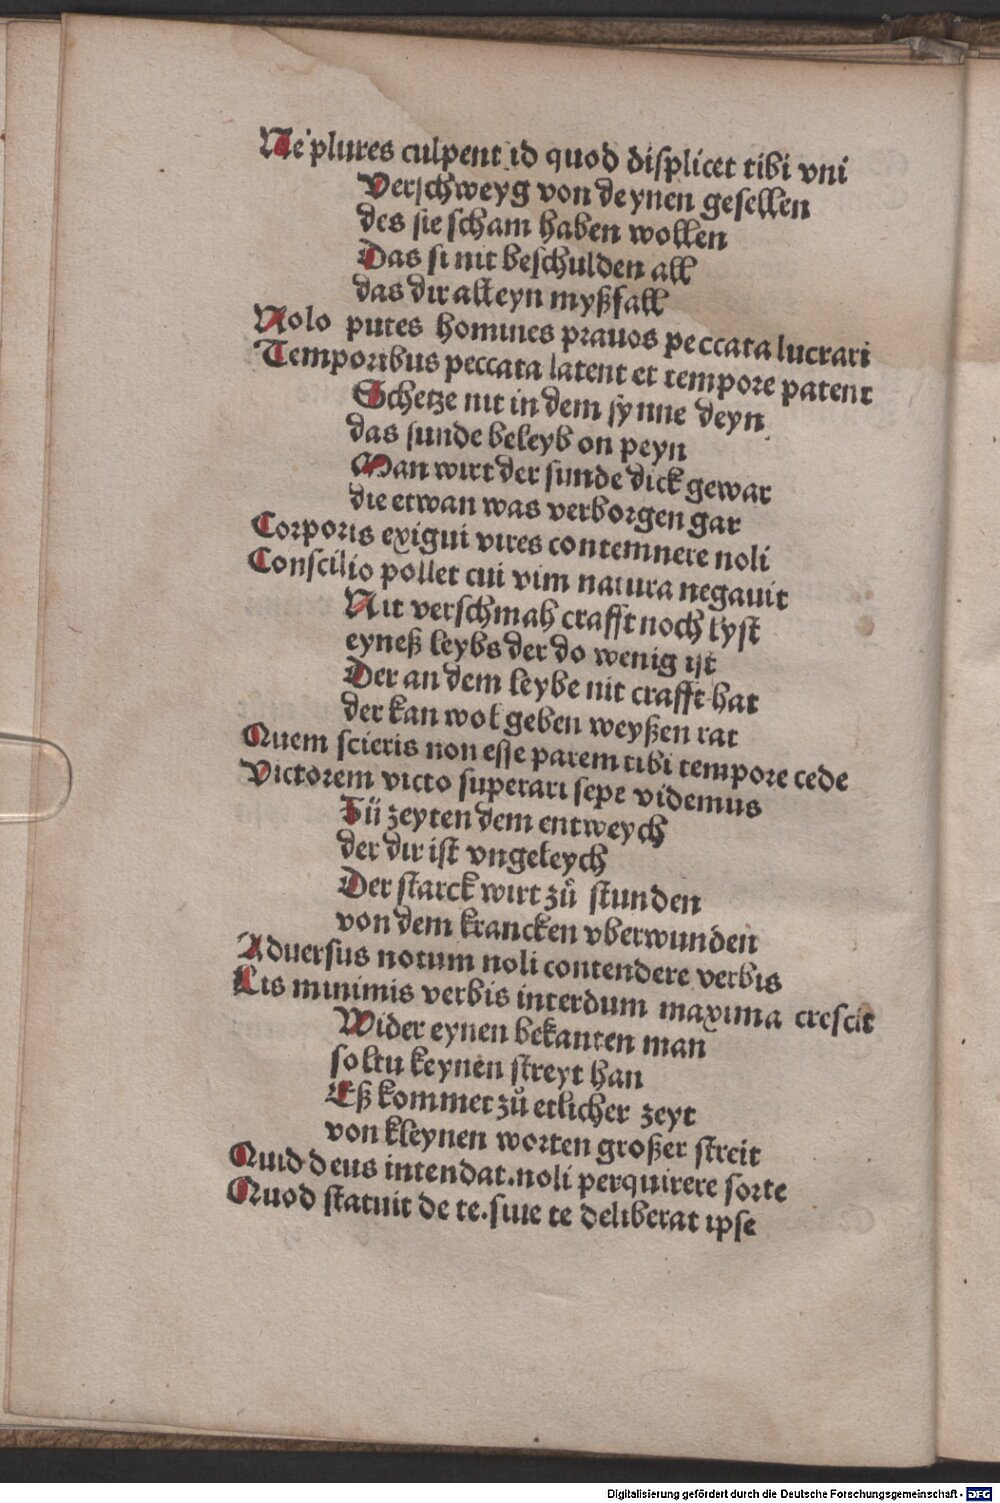 Ne plures culpent id quod displicet tibi vni
Verschweyg von deynen gesellen
des sie scham haben wollen
Das si nit beschulden all
das dir alleyn myßfall
Nolo putes homines prauos peccata lucrari
Temporibus peccata latent et tempore patent
Schetze nit in dem synne deyn
das sunde beleyb on peyn
Man wirt der sunde dick gewar
die etwan was verborgen gar
Corporis exigui vires contemnere noli
Conscilio pollet cui vim natura negauit
Nit verschmah crafft noch lyst
eyneß leybs der do wenig ist
Der an dem leybe nit crafft hat
der kan wol geben weyßen rat
Quem scieris non esse parem tibi tempore cede
Victorem victo superari sepe videmus
Zü zeyten dem entweych
der dir ist vngeleych
Der starck wirt zů stunden
von dem krancken vberwunden
Aduersus notum noli contendere verbis
Lis minimis verbis interdum maxima crescit
Wider eynen bekanten man
soltu keynen streyt han
Eß kommet zů etlicher zeyt
von kleynen worten großer streit
Quid deus intendat.noli perquirere sorte
Quod statuit de te.siue te deliberat ipse
Digitalisierung gefördert durch die Deutsche Forschungsgemeinschaft - DFG